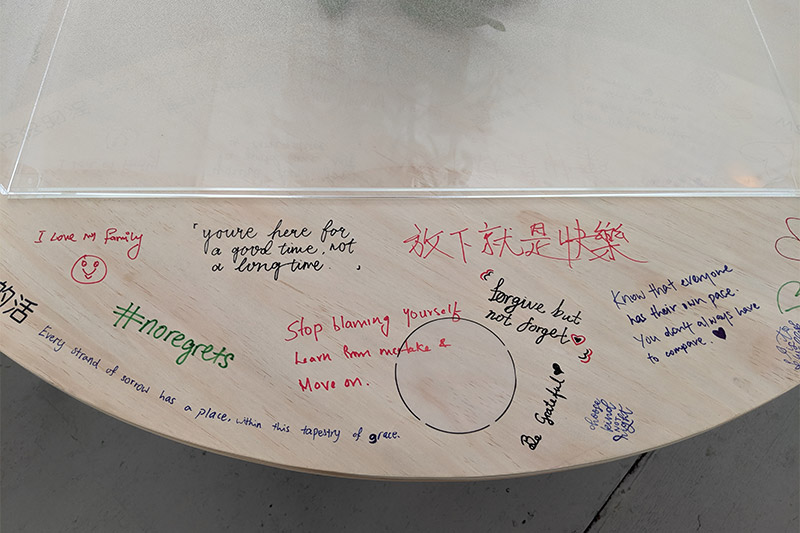 I Love my family
'youre here for
a good time, not
a long time.,
放下就是快樂
的活
#noregrets
Every strand of sorrow has a place, within this tapestry of grace.
Stop blaming yourself
Learn from mistake &
Move on.
"forgive but
not forget"
Be Grateful
choose
kind
NOT
right
Know that everyone
has their own pace.
You don't always have
to compare.